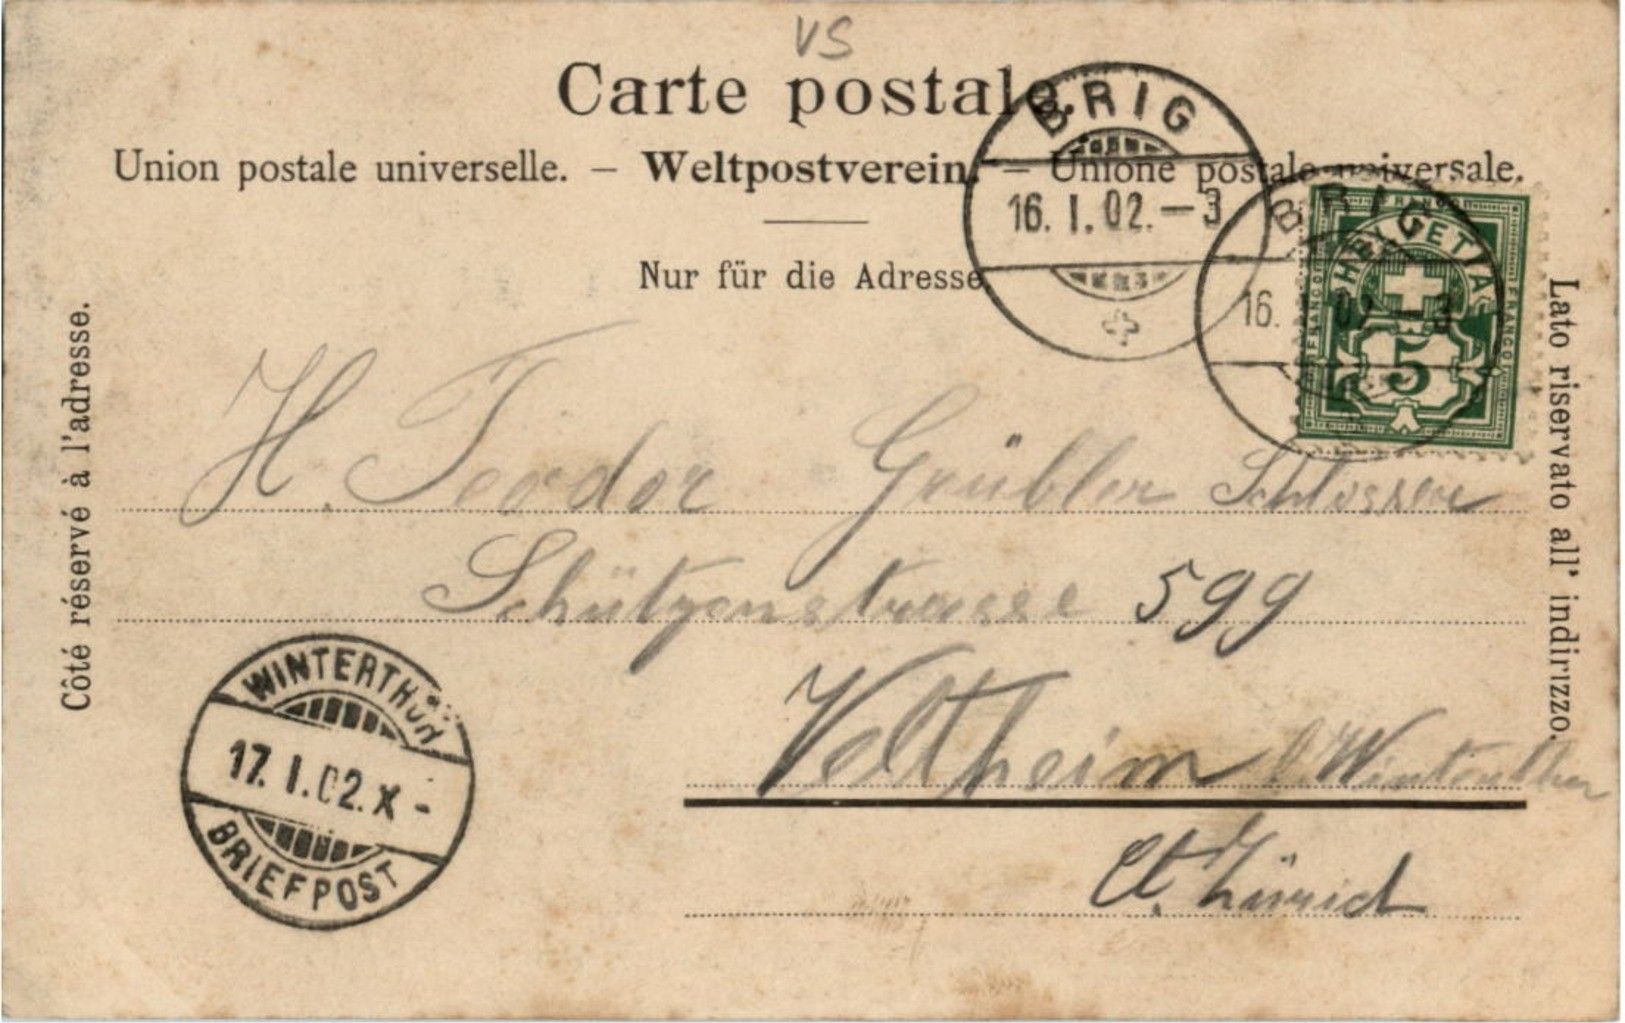 VS
Carte postale.
Union postale universelle. – Weltpostverein. – Unione postale universale.
Nur für die Adresse.
Côté réservé à l'adresse.
Lato riservato all' indirizzo.
BRIG
16. I. 02. – 3
BRIG
16. 02 3
FRANCO
HELVETIA
FRANCO
FRANCO
5
H. Teodor Grübler Schlosser
Schützenstrasse 599
Veltheim b. Winterthur
Ct. Zürich
WINTERTHUR
17. I. 02. X -
BRIEFPOST